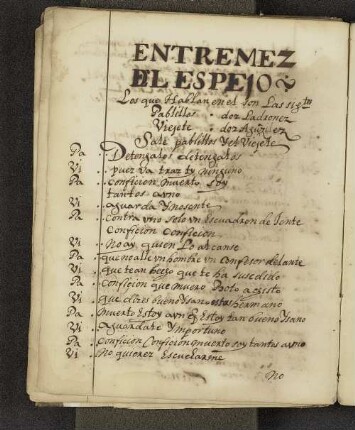 ENTREMEZ
DEL ESPEJO
Los que Hablan en el son Las sigtes
Pablillos . dos Ladrones
Viejete . dos
Sale pablillos y el Viejete
Pa Detengalos detengalos
Vi . pues va tras ty ninguno
Pa . confision muerto soy
tantos a uno
Vi . aguarda ynosente
Pa . contra uno solo un escuadron de jente
confision confision
Vi . no ay quien lo alcanse
Pa . que no alle un hombre un confesor delante
Vi . que te an hecho que te ha susedido
Pa . confision que muero
Vi . que dises bueno y sano estas hermano
Pa . muerto estoy aun q Estoy tan bueno y sano
Vi . aguardate ymportuno
Pa . confision Confision muerto soy tantos a uno
Vi . No quieres Escucharme
No